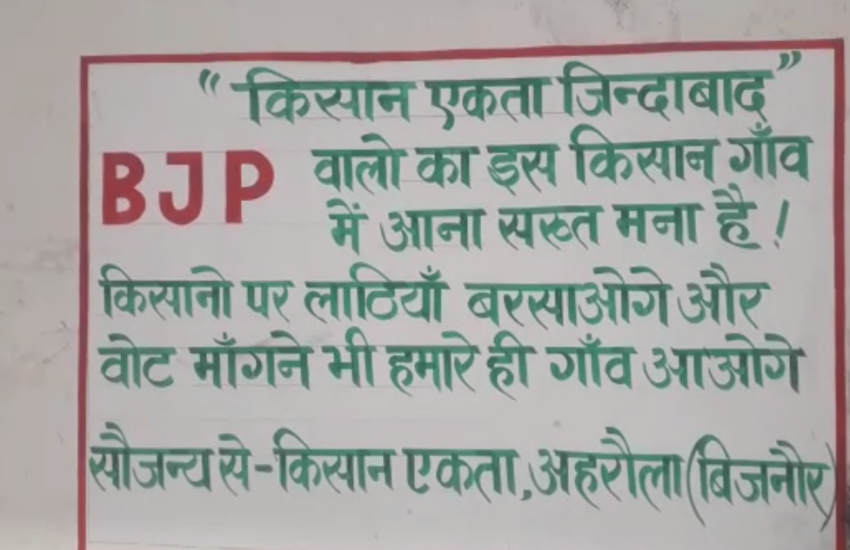 “किसान एकता जिन्दाबाद”
BJP वालो का इस किसान गाँव
में आना सख्त मना है!
किसानो पर लाठियाँ बरसाओगे और
वोट माँगने भी हमारे ही गाँव आओगे
सौजन्य से-किसान एकता,अहरौला(बिजनौर)